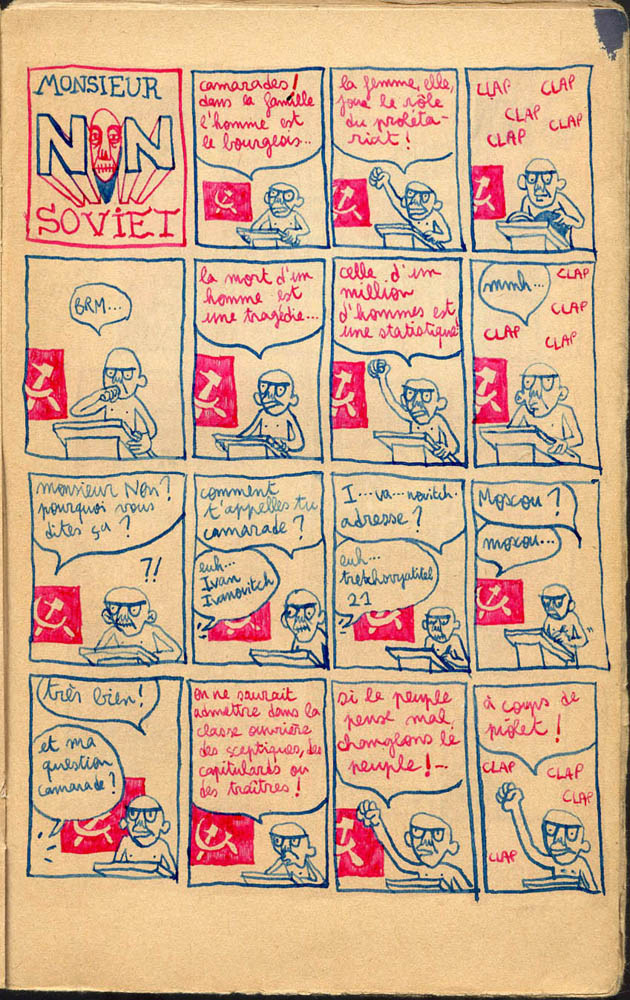 MONSIEUR
NON
SOVIET
camarades!
dans la famille
l'homme est
le bourgeois...
la femme, elle,
joue le rôle
du proléta-
riat!
CLAP
CLAP
CLAP
CLAP
CLAP
BRM...
la mort d'un
homme est
une tragédie...
celle d'un
million
d'hommes est
une statistique!
mmh...
CLAP
CLAP
CLAP
CLAP
monsieur Non?
pourquoi vous
dites ça?
?!
comment
t'appelles tu
camarade?
euh...
Ivan
Ivanovitch
I...va...novitch.
adresse?
euh...
21
Moscou?
moscou...
très bien!
et ma
question
camarade?
on ne saurait
admettre dans la
classe ouvrière
des sceptiques, des
capitulards ou
des traîtres!
si le peuple
pense mal,
changeons le
peuple!-
à coups de
piolet!
CLAP
CLAP
CLAP
CLAP